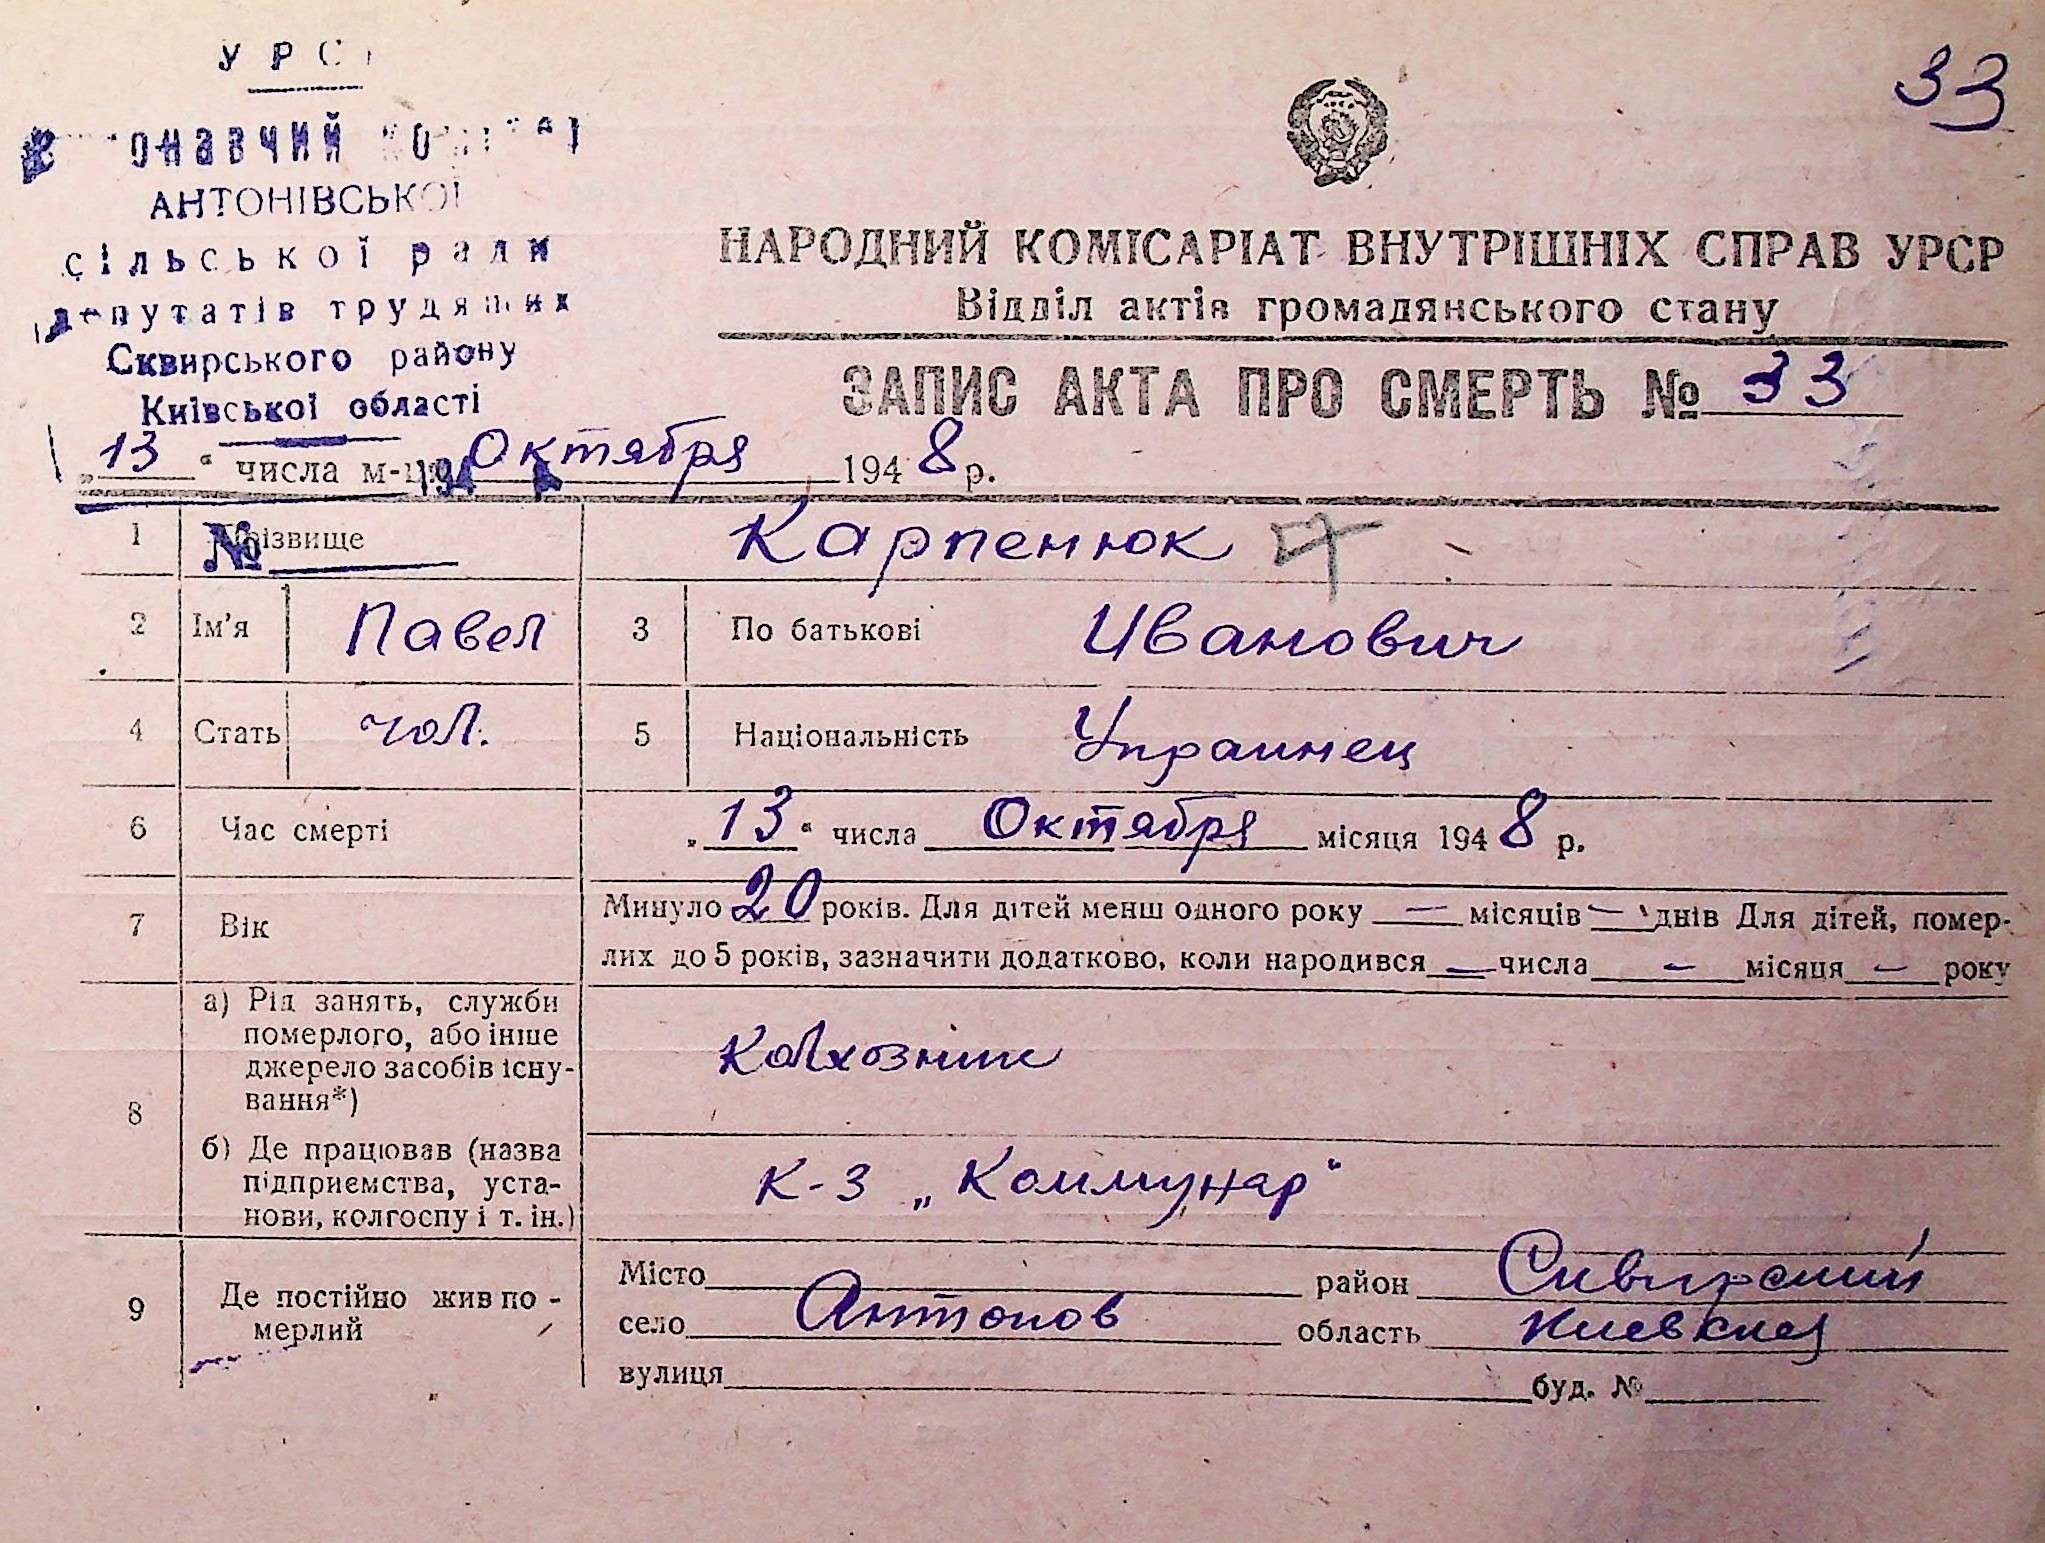 УРСР
Виконавчий комітет
АНТОНІВСЬКОЇ
сільської ради
депутатів трудящих
Сквирського району
Київської області
33
НАРОДНИЙ КОМІСАРІАТ ВНУТРІШНІХ СПРАВ УРСР
Відділ актів громадянського стану
ЗАПИС АКТА ПРО СМЕРТЬ № 33
„13“ числа м-ця Октября 1948 р.
194
№
1 Прізвище Карпенюк
2 Ім'я Павел 3 По батькові Иванович
4 Стать чол. 5 Національність Украинец
6 Час смерті „13“ числа Октября місяця 1948 р.
7 Вік Минуло 20 років. Для дітей менш одного року — місяців — днів Для дітей, помер-
лих до 5 років, зазначити додатково, коли народився — числа — місяця — року
8 а) Рід занять, служби
померлого, або інше
джерело засобів існу-
вання*) Колхозник
б) Де працював (назва
підприємства, уста-
нови, колгоспу і т. ін.) К-з „Коммунар“
9 Де постійно жив по-
мерлий
Місто район Сквирский
село Антонов область Киевская
вулиця буд. №